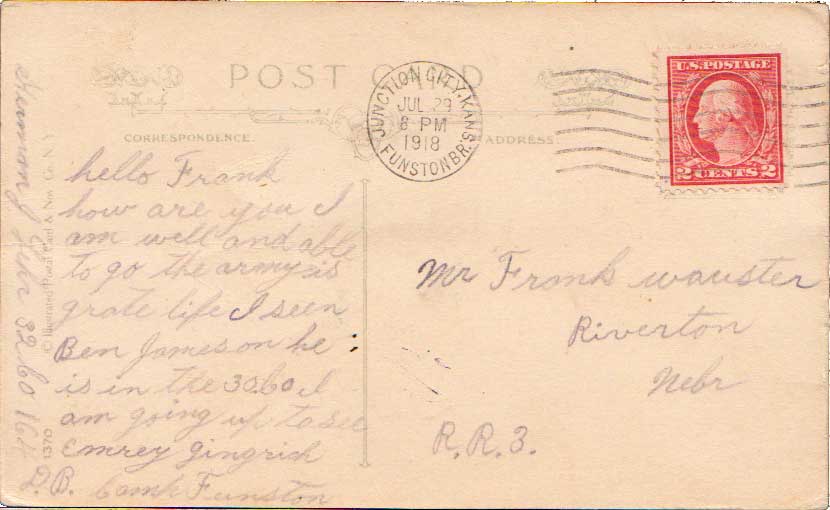 POST CARD
CORRESPONDENCE.
ADDRESS.
JUNCTION CITY, KANS.
JUL 29
8 PM
1918
FUNSTON BR.
U.S. POSTAGE
2 CENTS 2
hello Frank
how are you I
am well and able
to go the army is
grate life I seen
Ben Jameson he
is in the 30.60 I
am going up to see
Emrey Gingrich
D.B. Camk Funston
Herman 32 60 164
Mr Frank wauster
Riverton
Nebr
R.R.3.
© Illustrated Postal Card & Nov. Co. N.Y.
1370